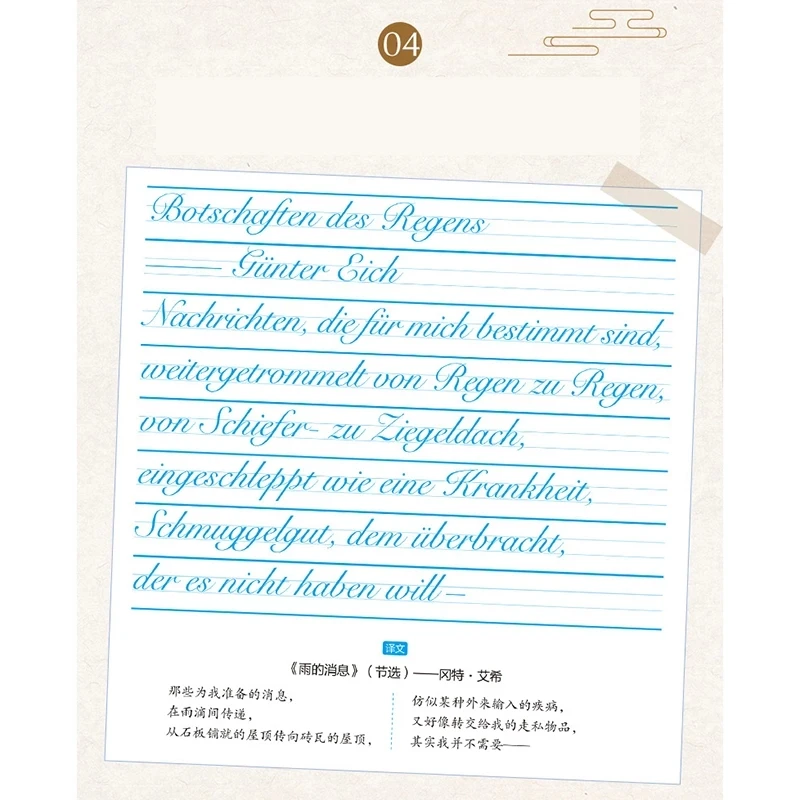 04
Botschaften des Regens
—— Günter Eich
Nachrichten, die für mich bestimmt sind,
weitergetrommelt von Regen zu Regen,
von Schiefer- zu Ziegeldach,
eingeschleppt wie eine Krankheit,
Schmuggelgut, dem überbracht,
der es nicht haben will –
译文
《雨的消息》（节选）——冈特·艾希
那些为我准备的消息，
在雨滴间传递，
从石板铺就的屋顶传向砖瓦的屋顶，
仿似某种外来输入的疾病，
又好像转交给我的走私物品，
其实我并不需要——